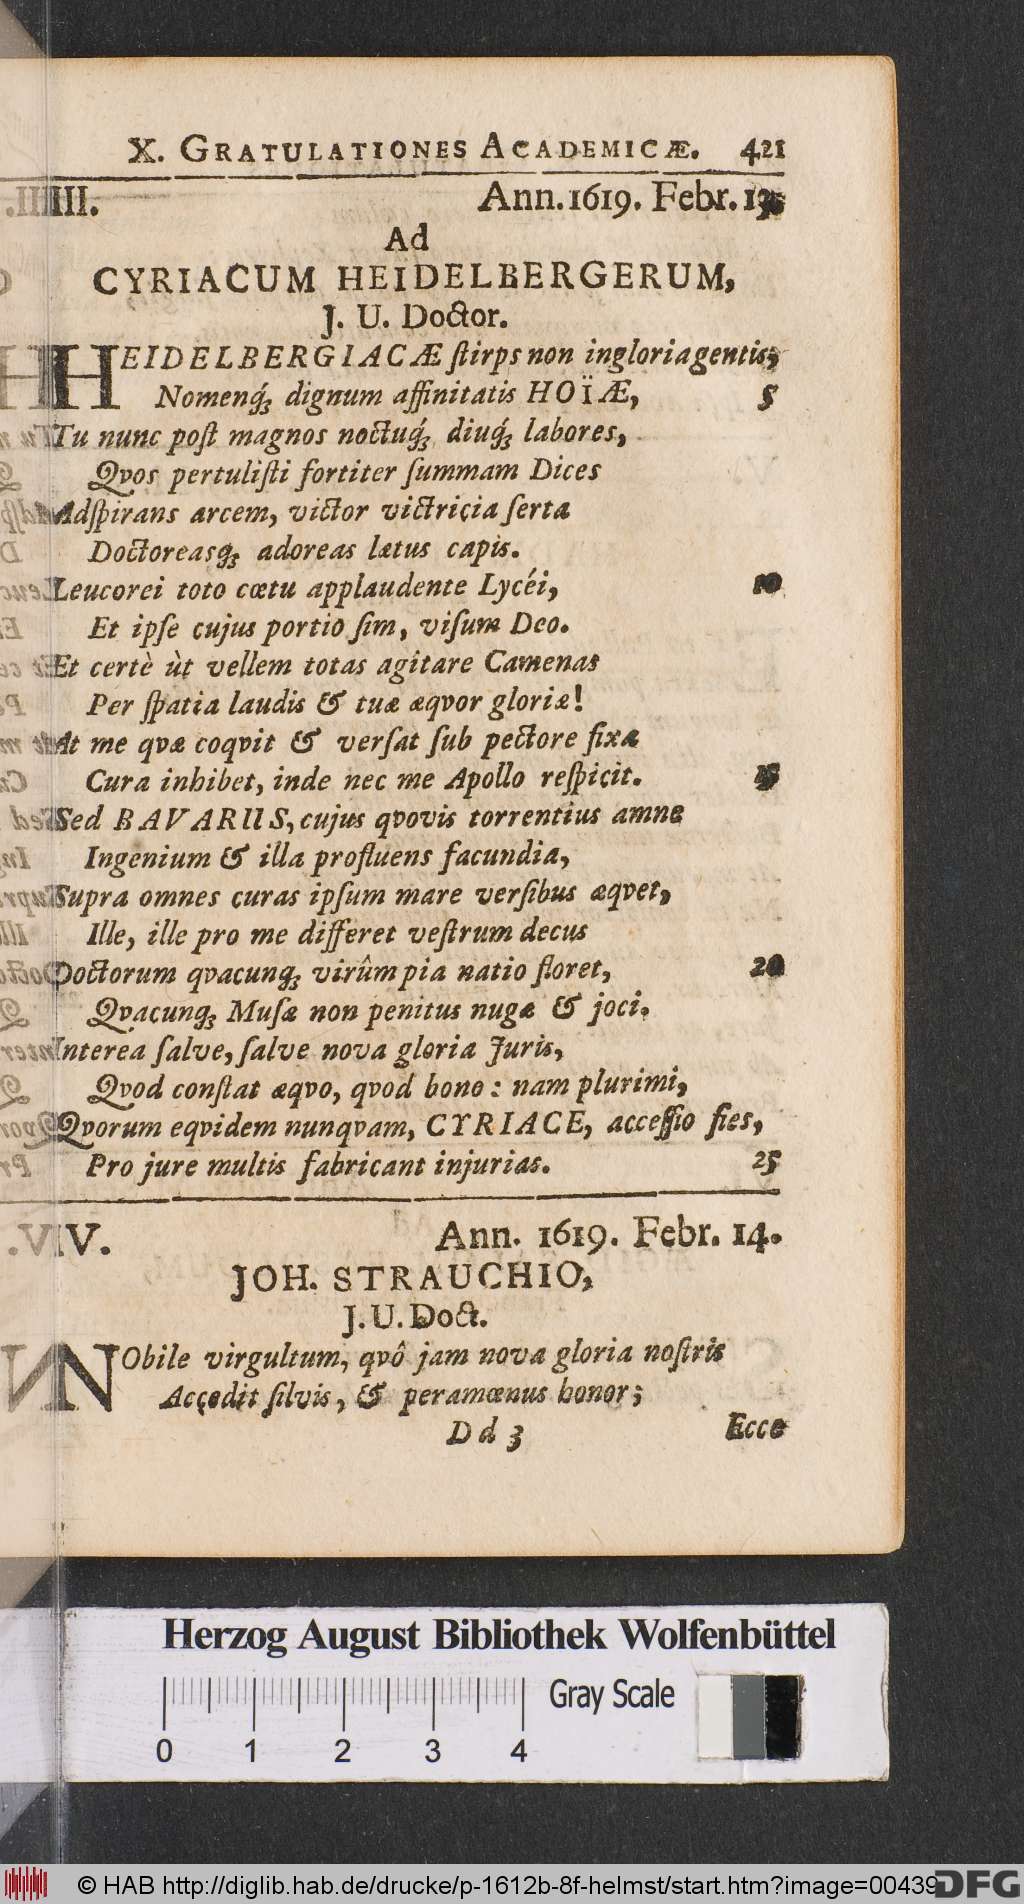 X. GRATULATIONES ACADEMICÆ. 421
III. Ann. 1619. Febr.
Ad
CYRIACUM HEIDELBERGERUM,
J. U. Doctor.
HEIDELBERGIACÆ ſtirps non ingloria gentis,
Nomenq́; dignum affinitatis HOÏÆ, 5
Tu nunc poſt magnos noctuq́; diuq́; labores,
Qvos pertuliſti fortiter ſummam Dices
Adſpirans arcem, victor victricia ſerta
Doctoreasq; adoreas lætus capis.
Leucorei toto cœtu applaudente Lycéi, 10
Et ipſe cujus portio ſim, viſum Deo.
Et certè ùt vellem totas agitare Camenas
Per ſpatia laudis & tuæ æqvor gloriæ!
At me qvæ coqvit & verſat ſub pectore fixa
Cura inhibet, inde nec me Apollo reſpicit. 15
Sed BAVARUS, cujus qvovis torrentius amne
Ingenium & illa profluens facundia,
Supra omnes curas ipſum mare verſibus æqvet,
Ille, ille pro me differet veſtrum decus
Doctorum qvacunq; virûm pia natio floret, 20
Qvacunq; Muſæ non penitus nugæ & joci.
Interea ſalve, ſalve nova gloria Juris,
Qvod conſtat æqvo, qvod bono: nam plurimi,
Qvorum eqvidem nunqvam, CYRIACE, acceſſio fies,
Pro jure multis fabricant injurias. 25
IV. Ann. 1619. Febr. 14.
JOH. STRAUCHIO,
J. U. Doct.
NObile virgultum, qvô jam nova gloria noſtris
Accedit ſilvis, & peramœnus honor;
Dd 3 Ecce
Herzog August Bibliothek Wolfenbüttel
Gray Scale
0 1 2 3 4
© HAB http://diglib.hab.de/drucke/p-1612b-8f-helmst/start.htm?image=00439
DFG